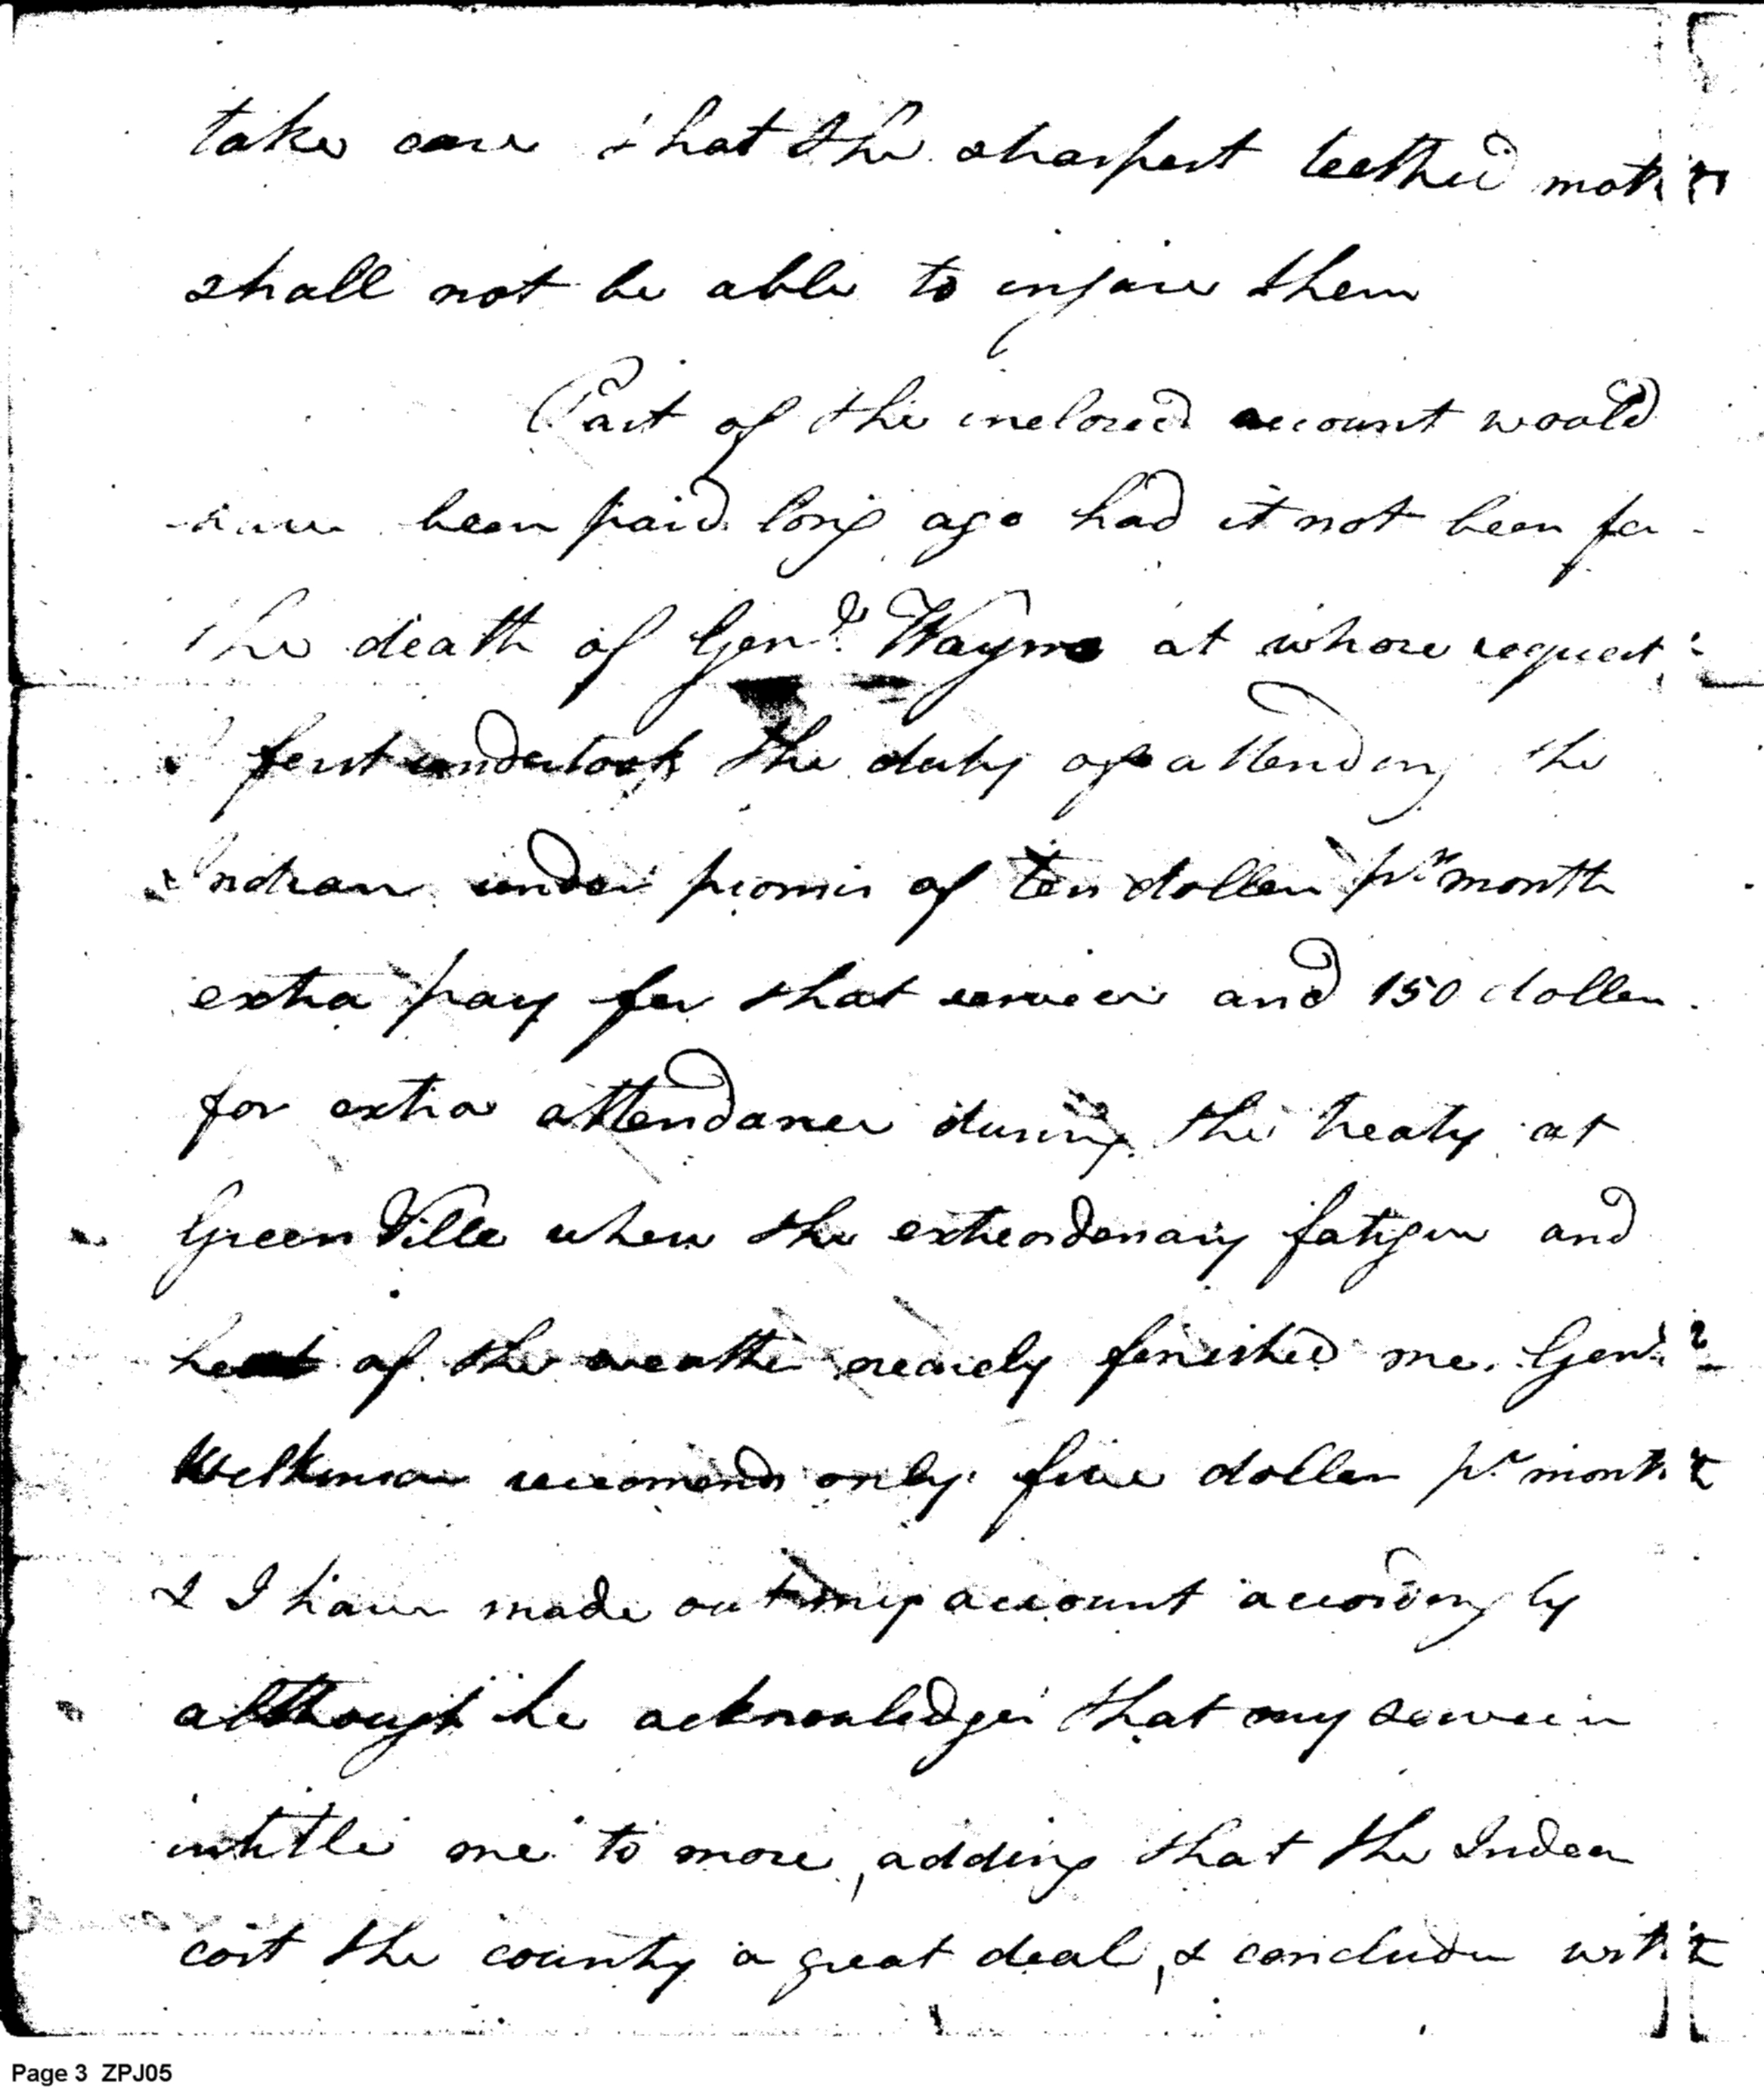 take care that the sharpest teethed moths
shall not be able to injure them
Part of the inclosed account would
have been paid long ago had it not been for
the death of Genl. Wayne at whose request
I first undertook the duty of attending the
Indians under promis of ten dollers pr month
extra pay for that service and 150 dollers
for extra attendance during the treaty at
Green Ville when the extreordenary fatigue and
heat of the weather nearely finished me. Genl.
Wilkinson recomends only five dollers pr month
& I have made out my account accordingly
although he acknowledges that my services
intitle me to more, adding that the Indens
cost the county a great deal, & concludes with
Page 3 ZPJ05